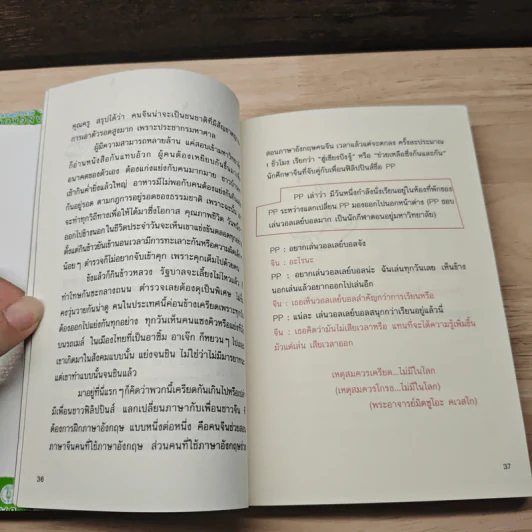 คุณครู สรุปได้ว่า คนจีนน่าจะเป็นชนชาติที่มีสัญชาต
การเอาตัวรอดสูงมาก เพราะประชากรมหาศาล
ผู้มีความสามารถหลายล้าน แต่สอบเข้ามหาวิท
ก็อ่านหนังสือกันแทบอ้วก ผู้คนต้องเหยียบกันขึ้น
อนาคตของตัวเอง ต้องแก่งแย่งกับคนมากมาย
เข้ากันค่ำยิ่งแล้วใหญ่ อาหารมีไม่พอกับคนต้องแย่งกัน
กันอยู่รอด ตามกฎการอยู่รอดของธรรมชาติ เพราะฉะนั้น
จะทำทุกวิถีทางเพื่อให้ได้มาซึ่งโอกาส คุณภาพชีวิต
ออกไปข้างนอก ในชีวิตประจำวันจะเห็นเขาแย่งชิงกันตลอด
ตั้งแต่กินข้าวยันเข้านอนเวลามีการทะเลาะกันหรือความผิด
น้อยๆ ตำรวจก็ไม่อยากจับเข้าคุก เพราะคุกเต็มไปด้วย
ขังแล้วก็กินข้าวหลวง รัฐบาลจะเลี้ยงไม่ไหวแล้ว
ทำโทษกันซะกลางถนน ตำรวจเลยต้องดุเป็นพิเศษ ไม่
คงวุ่นวายกันน่าดู คนในประเทศนี้ค่อนข้างเครียดเพราะ
ต้องออกไปแย่งกันทุกอย่าง ทุกวันเห็นคนแซงคิวหรือแย่ง
บนรถเมล์ ในเมืองไทยที่เป็นอาซิ้ม อาเจ็ก ก็พยวนๆ
เขาเกิดมาในสังคมแบบนั้น แย่งจนชิน ไม่ใช่ว่าไม่มีมารยาท
แต่เขาทำแบบนั้นจนชินแล้ว
มาอยู่ที่นี่แรกๆ ก็คิดว่าพวกนี้เครียดกันเกินไปหรือ
มีเพื่อนชาวฟิลิปปินส์ แลกเปลี่ยนภาษากับเพื่อนชาวจีน
ต้องการฝึกภาษาอังกฤษ แบบหนึ่งต่อหนึ่ง คือคนจีนช่วยสอน
ภาษาจีนคนที่ใช้ภาษาอังกฤษ ส่วนคนที่ใช้ภาษาอังกฤษช่วย
36
สอนภาษาอังกฤษคนจีน เวลาแล้วแต่จะตกลง ครั้งละประมาณ
1 ชั่วโมง เรียกว่า "ฮู่เซียงปังจู้" หรือ "ช่วยเหลือซึ่งกันและกัน"
นักศึกษาจีนที่จับคู่กับเพื่อนฟิลิปปินส์ชื่อ PP
PP เล่าว่า มีวันหนึ่งกำลังนั่งเรียนอยู่ในห้องที่พักของ
PP ระหว่างแลกเปลี่ยน PP มองออกไปนอกหน้าต่าง (PP ชอบ
เล่นวอลเลย์บอลมาก เป็นนักกีฬาตอนอยู่มหาวิทยาลัย)
PP : อยากเล่นวอลเลย์บอลจัง
จีน : อะไรนะ
PP : อยากเล่นวอลเลย์บอลน่ะ ฉันเล่นทุกวันเลย เห็นข้าง
นอกเล่นแล้วอยากออกไปเล่นอีก
จีน : เธอเห็นวอลเลย์บอลสำคัญกว่าการเรียนหรือ
PP : แน่ละ เล่นวอลเลย์บอลสนุกกว่าเรียนอยู่แล้ว
จีน : เธอคิดว่ามันไม่เสียเวลาหรือ แทนที่จะได้ความรู้เพิ่มขึ้น
มัวแต่เล่น เสียเวลาออก
เหตุสมควรเครียด...ไม่มีในโลก
(เหตุสมควรโกรธ...ไม่มีในโลก)
(พระอาจารย์มิตซูโอะ คเวสโก)
37